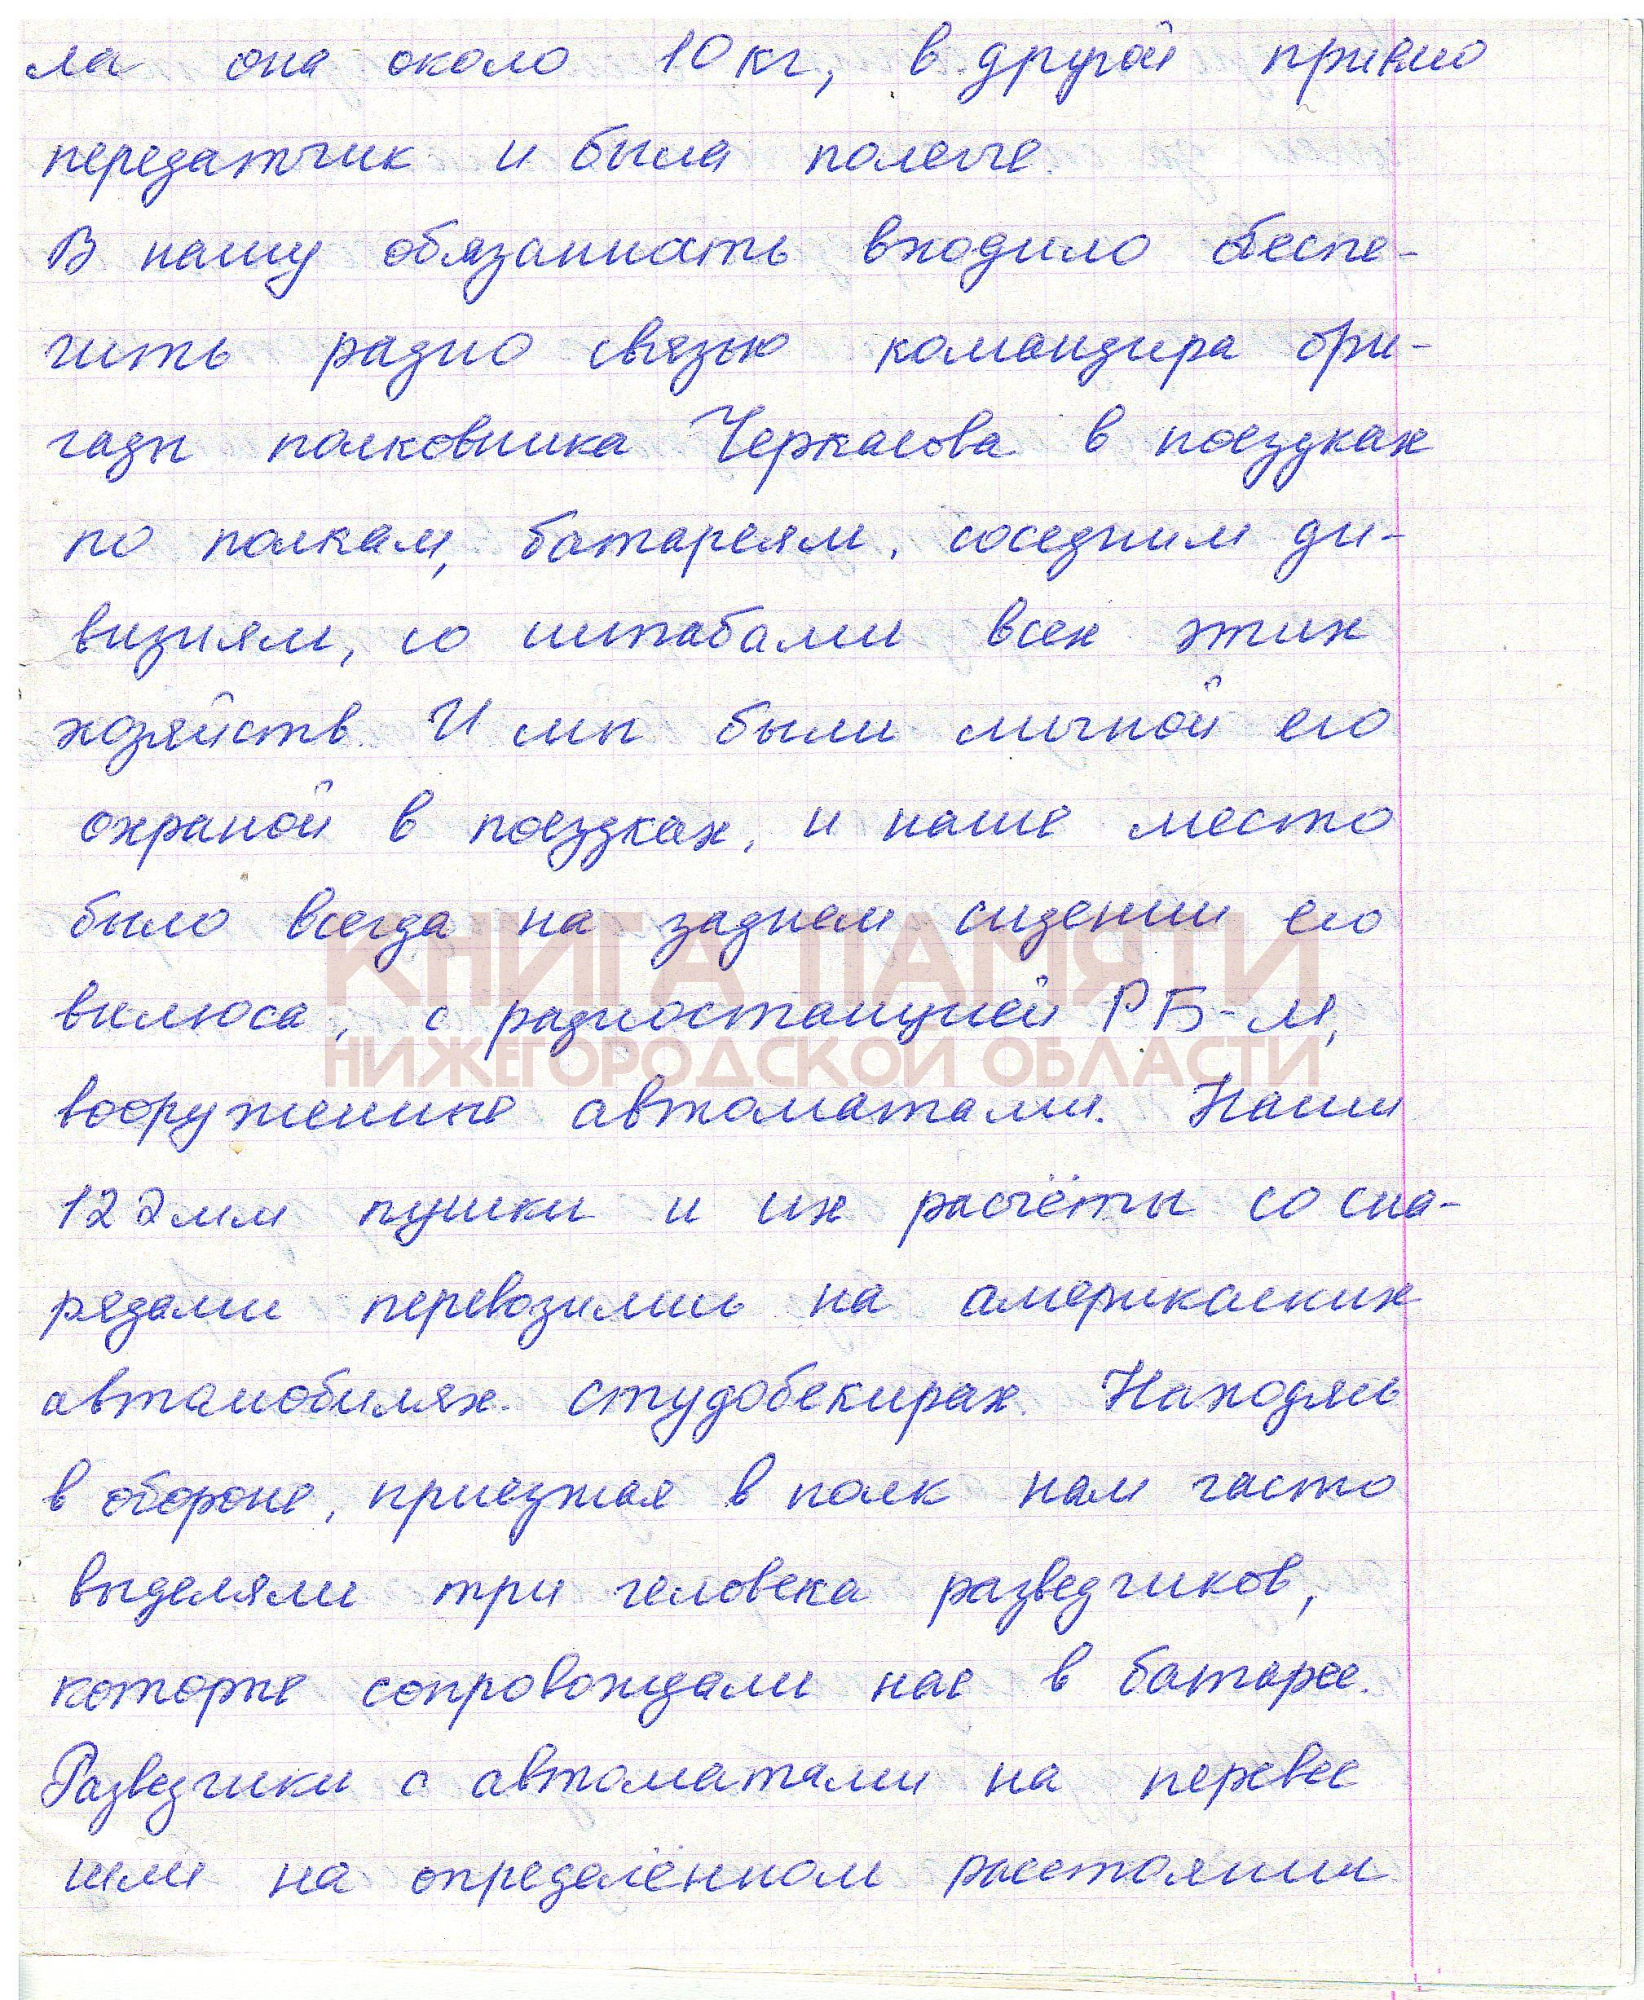 ла она около 10 кг, в другой приёмо
передатчик и была полегче.
В нашу обязанность входило обеспе-
чить радио связью командира бри-
гады полковника Черкасова в поездках
по полкам, батареям, соседним ди-
визиям, со штабами всех этих
хозяйств. И мы были личной его
охраной в поездках, и наше место
было всегда на заднем сидении его
КНИГА ПАМЯТИ
вилюса, с радиостанцией РБ-М,
НИЖЕГОРОДСКОЙ ОБЛАСТИ
вооружённые автоматами. Наши
122 мм пушки и их расчёты со сна-
рядами перевозились на америкаских
автомобилях студобекирах. Находясь
в обороне, приезжая в полк нам часто
выделяли три человека разведчиков,
которые сопровождали нас в батарее.
Разведчики с автоматами на перевес
шли на определённом расстоянии